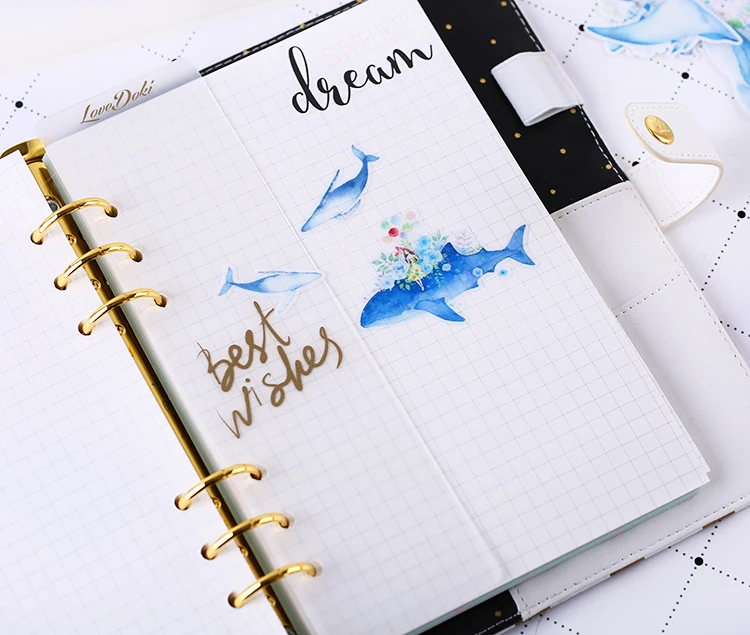 LoveDoki
dream
Best
wishes